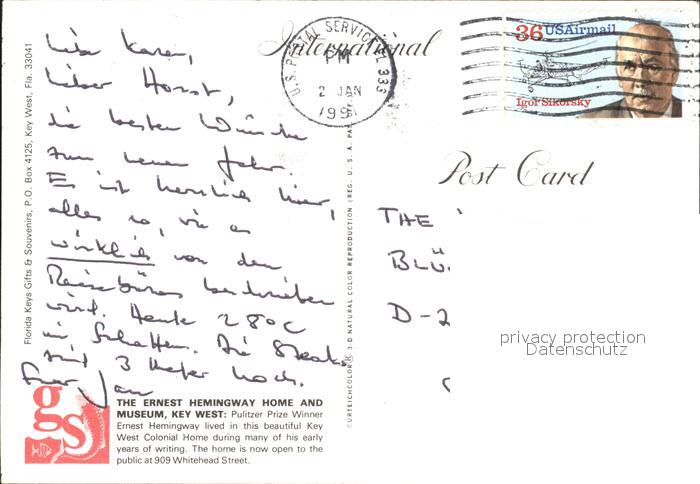 Liebe Karen,
lieber Horst,
die besten Wünsche
zum neuen Jahr.
Es ist herrlich hier,
alles so, wie es
wirklich von den
Reisebüros beschrieben
wird. Heute 28°C
im Schatten. Die Steaks
sind 3 Meter hoch.
Euer Jan
Florida Keys Gifts & Souvenirs, P.O. Box 4125, Key West, Fla. 33041
gs
THE ERNEST HEMINGWAY HOME AND
MUSEUM, KEY WEST: Pulitzer Prize Winner
Ernest Hemingway lived in this beautiful Key
West Colonial Home during many of his early
years of writing. The home is now open to the
public at 909 Whitehead Street.
International
U.S. POSTAL SERVICE FL 333
PM
2 JAN
1991
36 USAirmail
Igor Sikorsky
Post Card
NATURAL COLOR REPRODUCTION (REG. U. S. A.
THE
BLÜ
D-2
privacy protection
Datenschutz